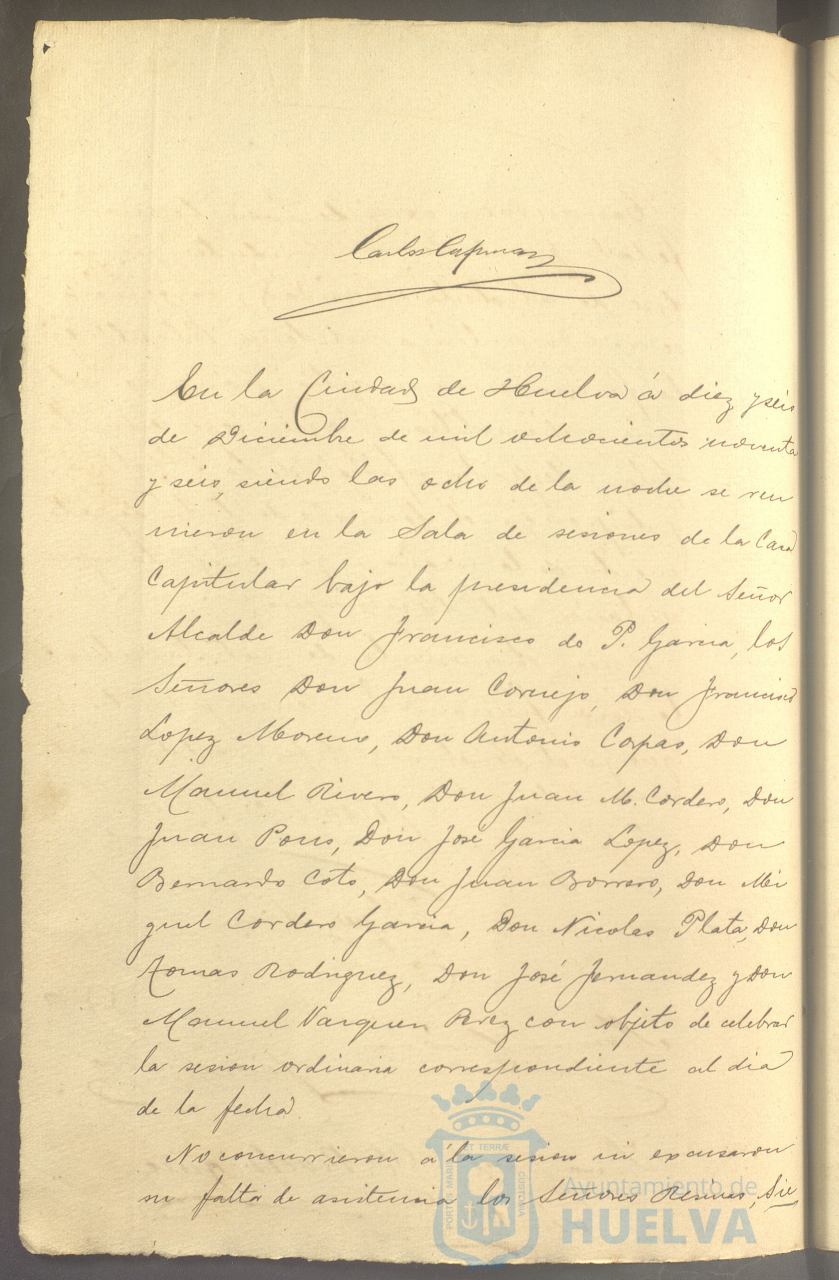 Carlos
En la Ciudad de Huelva á diez y seis
de Diciembre de mil ochocientos noventa
y seis, siendo las ocho de la noche se reu
nieron en la Sala de sesiones de la Casa
Capitular bajo la presidencia del Señor
Alcalde Don Francisco de P. Garcia, los
Señores Don Juan Cornejo, Don Francisco
Lopez Moreno, Don Antonio Corpas, Don
Manuel Rivero, Don Juan M. Cordero, Don
Juan Pons, Don José Garcia Lopez, Don
Bernardo Coto, Don Juan Borrero, Don Mi
guel Cordero Garcia, Don Nicolas Plata, Don
Tomas Rodriguez, Don José Fernandez y Don
Manuel Vazquez Perez con objeto de celebrar
la sesion ordinaria correspondiente al dia
de la fecha.
No concurrieron á la sesion ni excusaron
su falta de asistencia los Señores
PORTUS MARIS ET TERRÆ CUSTODIA
Ayuntamiento de
HUELVA